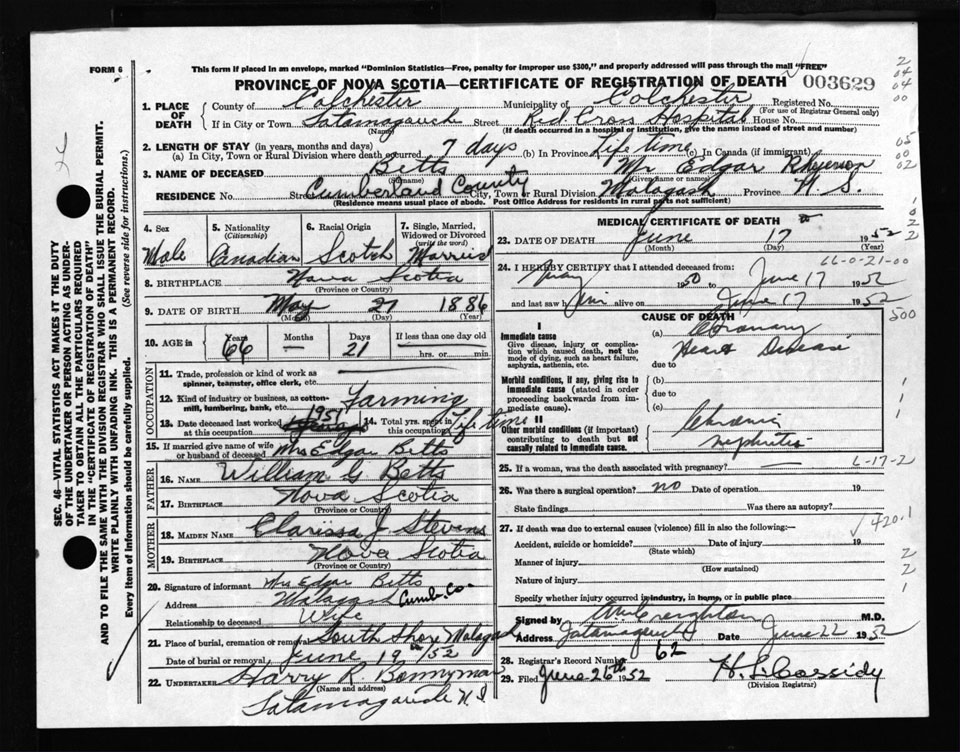 FORM 6
This form if placed in an envelope, marked "Dominion Statistics—Free, penalty for improper use $300," and properly addressed will pass through the mail "FREE"
PROVINCE OF NOVA SCOTIA—CERTIFICATE OF REGISTRATION OF DEATH 003629
1. PLACE OF DEATH County of Colchester Municipality of Colchester Registered No.
(For use of Registrar General only)
If in City or Town Tatamagouch Street Red Cross Hospital House No.
(Name) (If death occurred in a hospital or institution, give the name instead of street and number)
2. LENGTH OF STAY (in years, months and days)
(a) In City, Town or Rural Division where death occurred 7 days (b) In Province Life time (c) In Canada (if immigrant)
3. NAME OF DECEASED Betts Mr Edgar Rhyerson
(Surname) (Given name or names)
RESIDENCE No. St. Cumberland County City, Town or Rural Division Malagash Province N S.
(Residence means usual place of abode. Post Office Address for residents in rural parts not sufficient)
4. Sex Male
5. Nationality (Citizenship) Canadian
6. Racial Origin Scotch
7. Single, Married, Widowed or Divorced (write the word) Married
8. BIRTHPLACE Nova Scotia
(Province or Country)
9. DATE OF BIRTH May 27 1886
(Month) (Day) (Year)
10. AGE in Years 66 Months — Days 21 If less than one day old hrs. or min.
OCCUPATION
11. Trade, profession or kind of work as spinner, teamster, office clerk, etc.
12. Kind of industry or business, as cotton-mill, lumbering, bank, etc. Farming
13. Date deceased last worked at this occupation 1951
14. Total yrs. spent in this occupation Life time
15. If married give name of wife or husband of deceased Mrs Edgar Betts
FATHER
16. NAME William G Betts
17. BIRTHPLACE Nova Scotia
(Province or Country)
MOTHER
18. MAIDEN NAME Clarissa J Stevens
19. BIRTHPLACE Nova Scotia
(Province or Country)
20. Signature of informant Mrs Edgar Betts
Address Malagash Cumb. Co
Relationship to deceased Wife
21. Place of burial, cremation or removal South Shore Malagash
Date of burial or removal June 19 1952
22. UNDERTAKER Harry R Bonnyman
(Name and address)
Tatamagouche N.S
MEDICAL CERTIFICATE OF DEATH
23. DATE OF DEATH June 17 1952
(Month) (Day) (Year)
66-0-21-00
24. I HEREBY CERTIFY that I attended deceased from:
1950 to June 17 1952
and last saw him alive on June 17 1952
CAUSE OF DEATH
I
Immediate cause
Give disease, injury or complication which caused death, not the mode of dying, such as heart failure, asphyxia, asthenia, etc.
(a) Coronary
Heart Disease
due to
Morbid conditions, if any, giving rise to immediate cause (stated in order proceeding backwards from immediate cause).
(b)
due to
(c)
II
Other morbid conditions (if important) contributing to death but not causally related to immediate cause.
Chronic
nephritis
25. If a woman, was the death associated with pregnancy? — 6-17-2
26. Was there a surgical operation? no Date of operation 19
State findings Was there an autopsy?
27. If death was due to external causes (violence) fill in also the following:— 420.1
Accident, suicide or homicide? Date of injury 19
(State which)
Manner of injury
(How sustained)
Nature of injury
Specify whether injury occurred in industry, in home, or in public place
Signed by Creighton M.D.
Address Tatamagouche Date June 22 1952
28. Registrar's Record Number 62
29. Filed June 26th 1952 H. S. Cassidy
(Division Registrar)
SEC. 46—VITAL STATISTICS ACT MAKES IT THE DUTY
OF THE UNDERTAKER OR PERSON ACTING AS UNDER-
TAKER TO OBTAIN ALL THE PARTICULARS REQUIRED
IN THE "CERTIFICATE OF REGISTRATION OF DEATH"
AND TO FILE THE SAME WITH THE DIVISION REGISTRAR WHO SHALL ISSUE THE BURIAL PERMIT.
WRITE PLAINLY WITH UNFADING INK. THIS IS A PERMANENT RECORD.
Every item of Information should be carefully supplied. (See reverse side for instructions.)
2
04
04
00
05
00
02
500